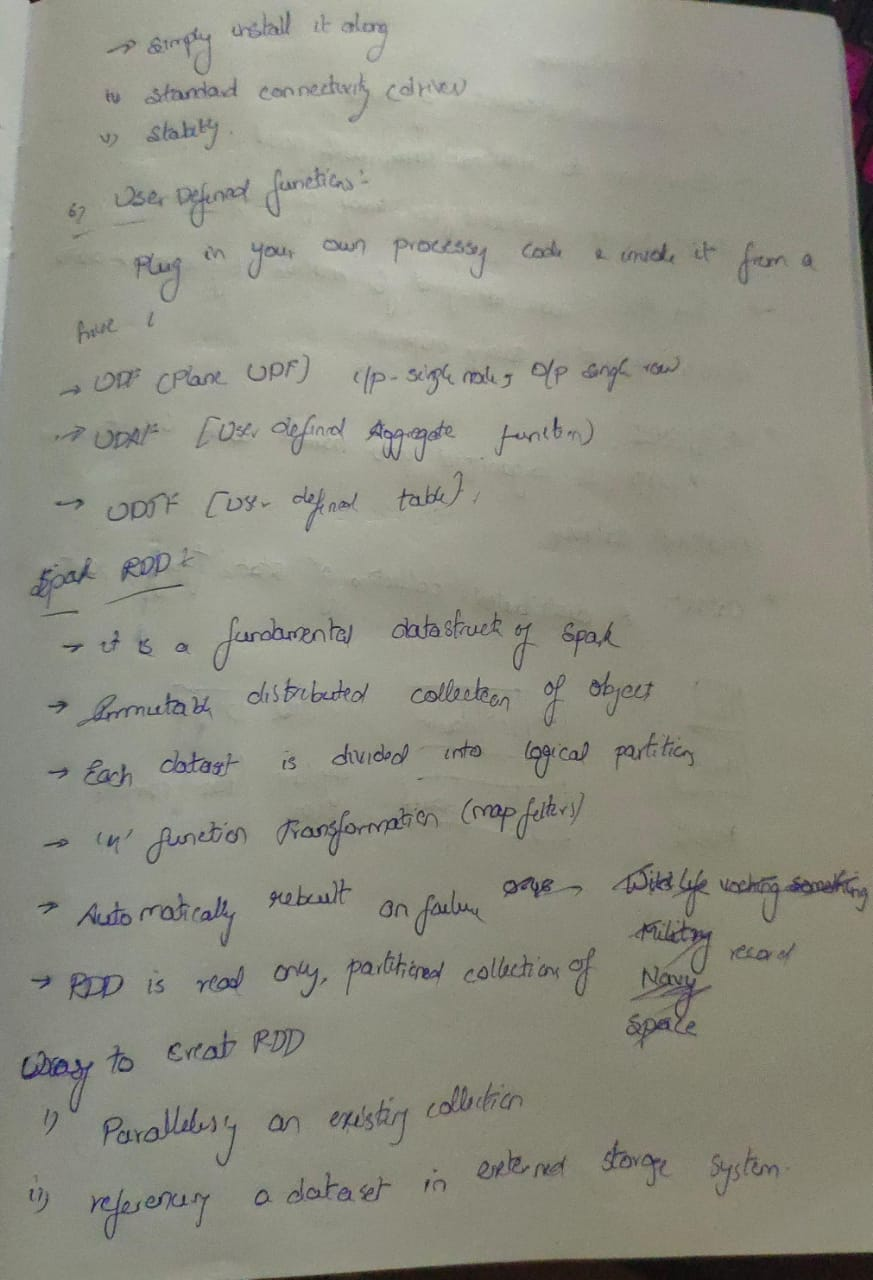 → Simply install it along
iv Standard connectivity (driver
v) Stability.
6) User Defined functions:-
Plug in your own processy code & invoke it from a
hive
→ UDF (Plane UDF) i/p - single node, O/p single row
→ UDAF [User defined Aggregate function)
→ UDTF [User defined table},
Spak RDD:-
→ it is a fundamental datastruct of Spak
→ Immutable distributed collection of object
→ Each datast is divided into logical partition
→ 'n' function Transformation (map felters)
→ Automatically rebuilt on failure → Wild life waching something
Military
→ RDD is read only, partitioned collections of record
Navy
Space
Way to creat RDD
i) Parallelesy an existing collection
ii) referency a dataset in external storge system.